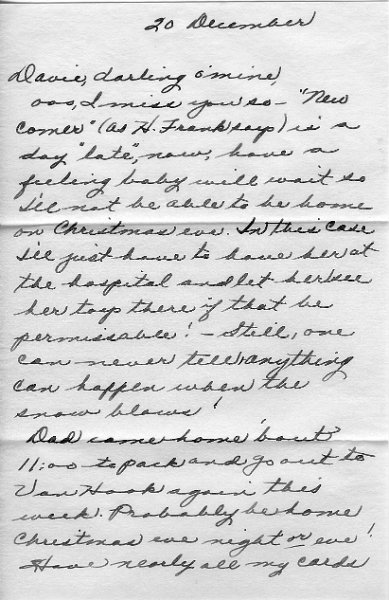 20 December
Davie, darling o'mine,
ooo, I miss you so - "New
comer" (as H. Frank says) is a
day "late", now, have a
feeling baby will wait so
I'll not be able to be home
on Christmas eve. In this case
I'll just have to have her at
the hospital and let her see
her toys there if that be
permissable! - Still, one
can never tell, anything
can happen when the
snow blows!
Dad came home 'bout
11:00 to pack and go out to
Van Hook again this
week. Probably be home
Christmas eve night or eve!
Have nearly all my cards